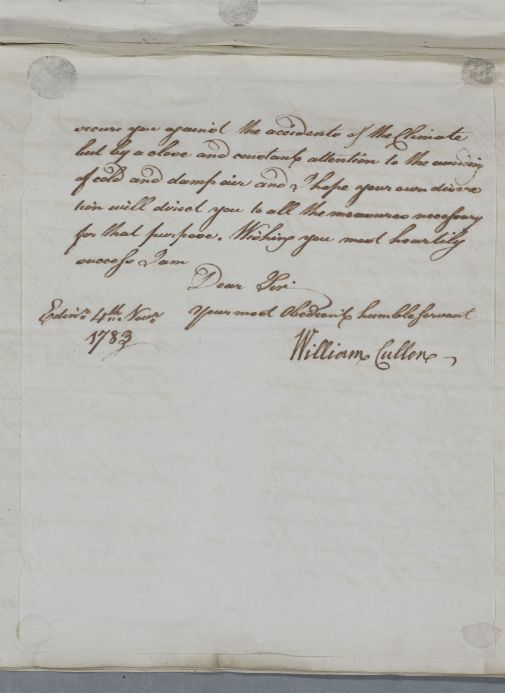 secure you against the accidents of the Climate
but by a close and constant attention to the avoiding
of cold and damp air and I hope your own discre
tion will direct you to all the measures necessary
for that purpose. Wishing you most heartily
success I am
Dear Sir
Edinr. 4th. Novr. Your most Obedient humble Servant
1783
William Cullen